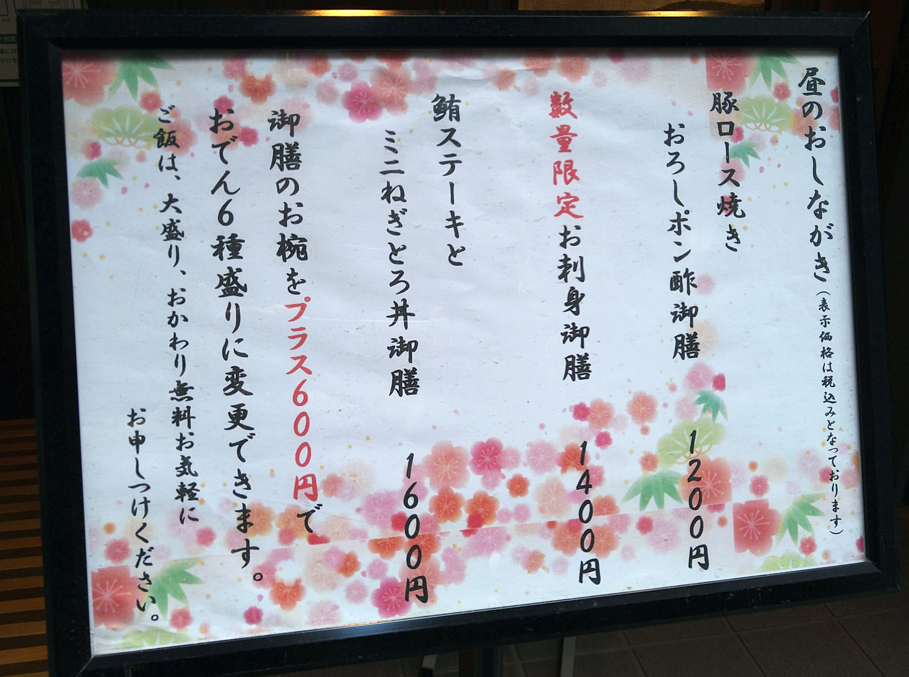 昼のおしながき(表示価格は税込みとなっております)
豚ロース焼き
おろしポン酢御膳 1200円
数量限定お刺身御膳 1400円
鮪ステーキと
ミニねぎとろ丼御膳 1600円
御膳のお椀をプラス600円で
おでん6種盛りに変更できます。
ご飯は、大盛り、おかわり無料お気軽に
お申しつけください。